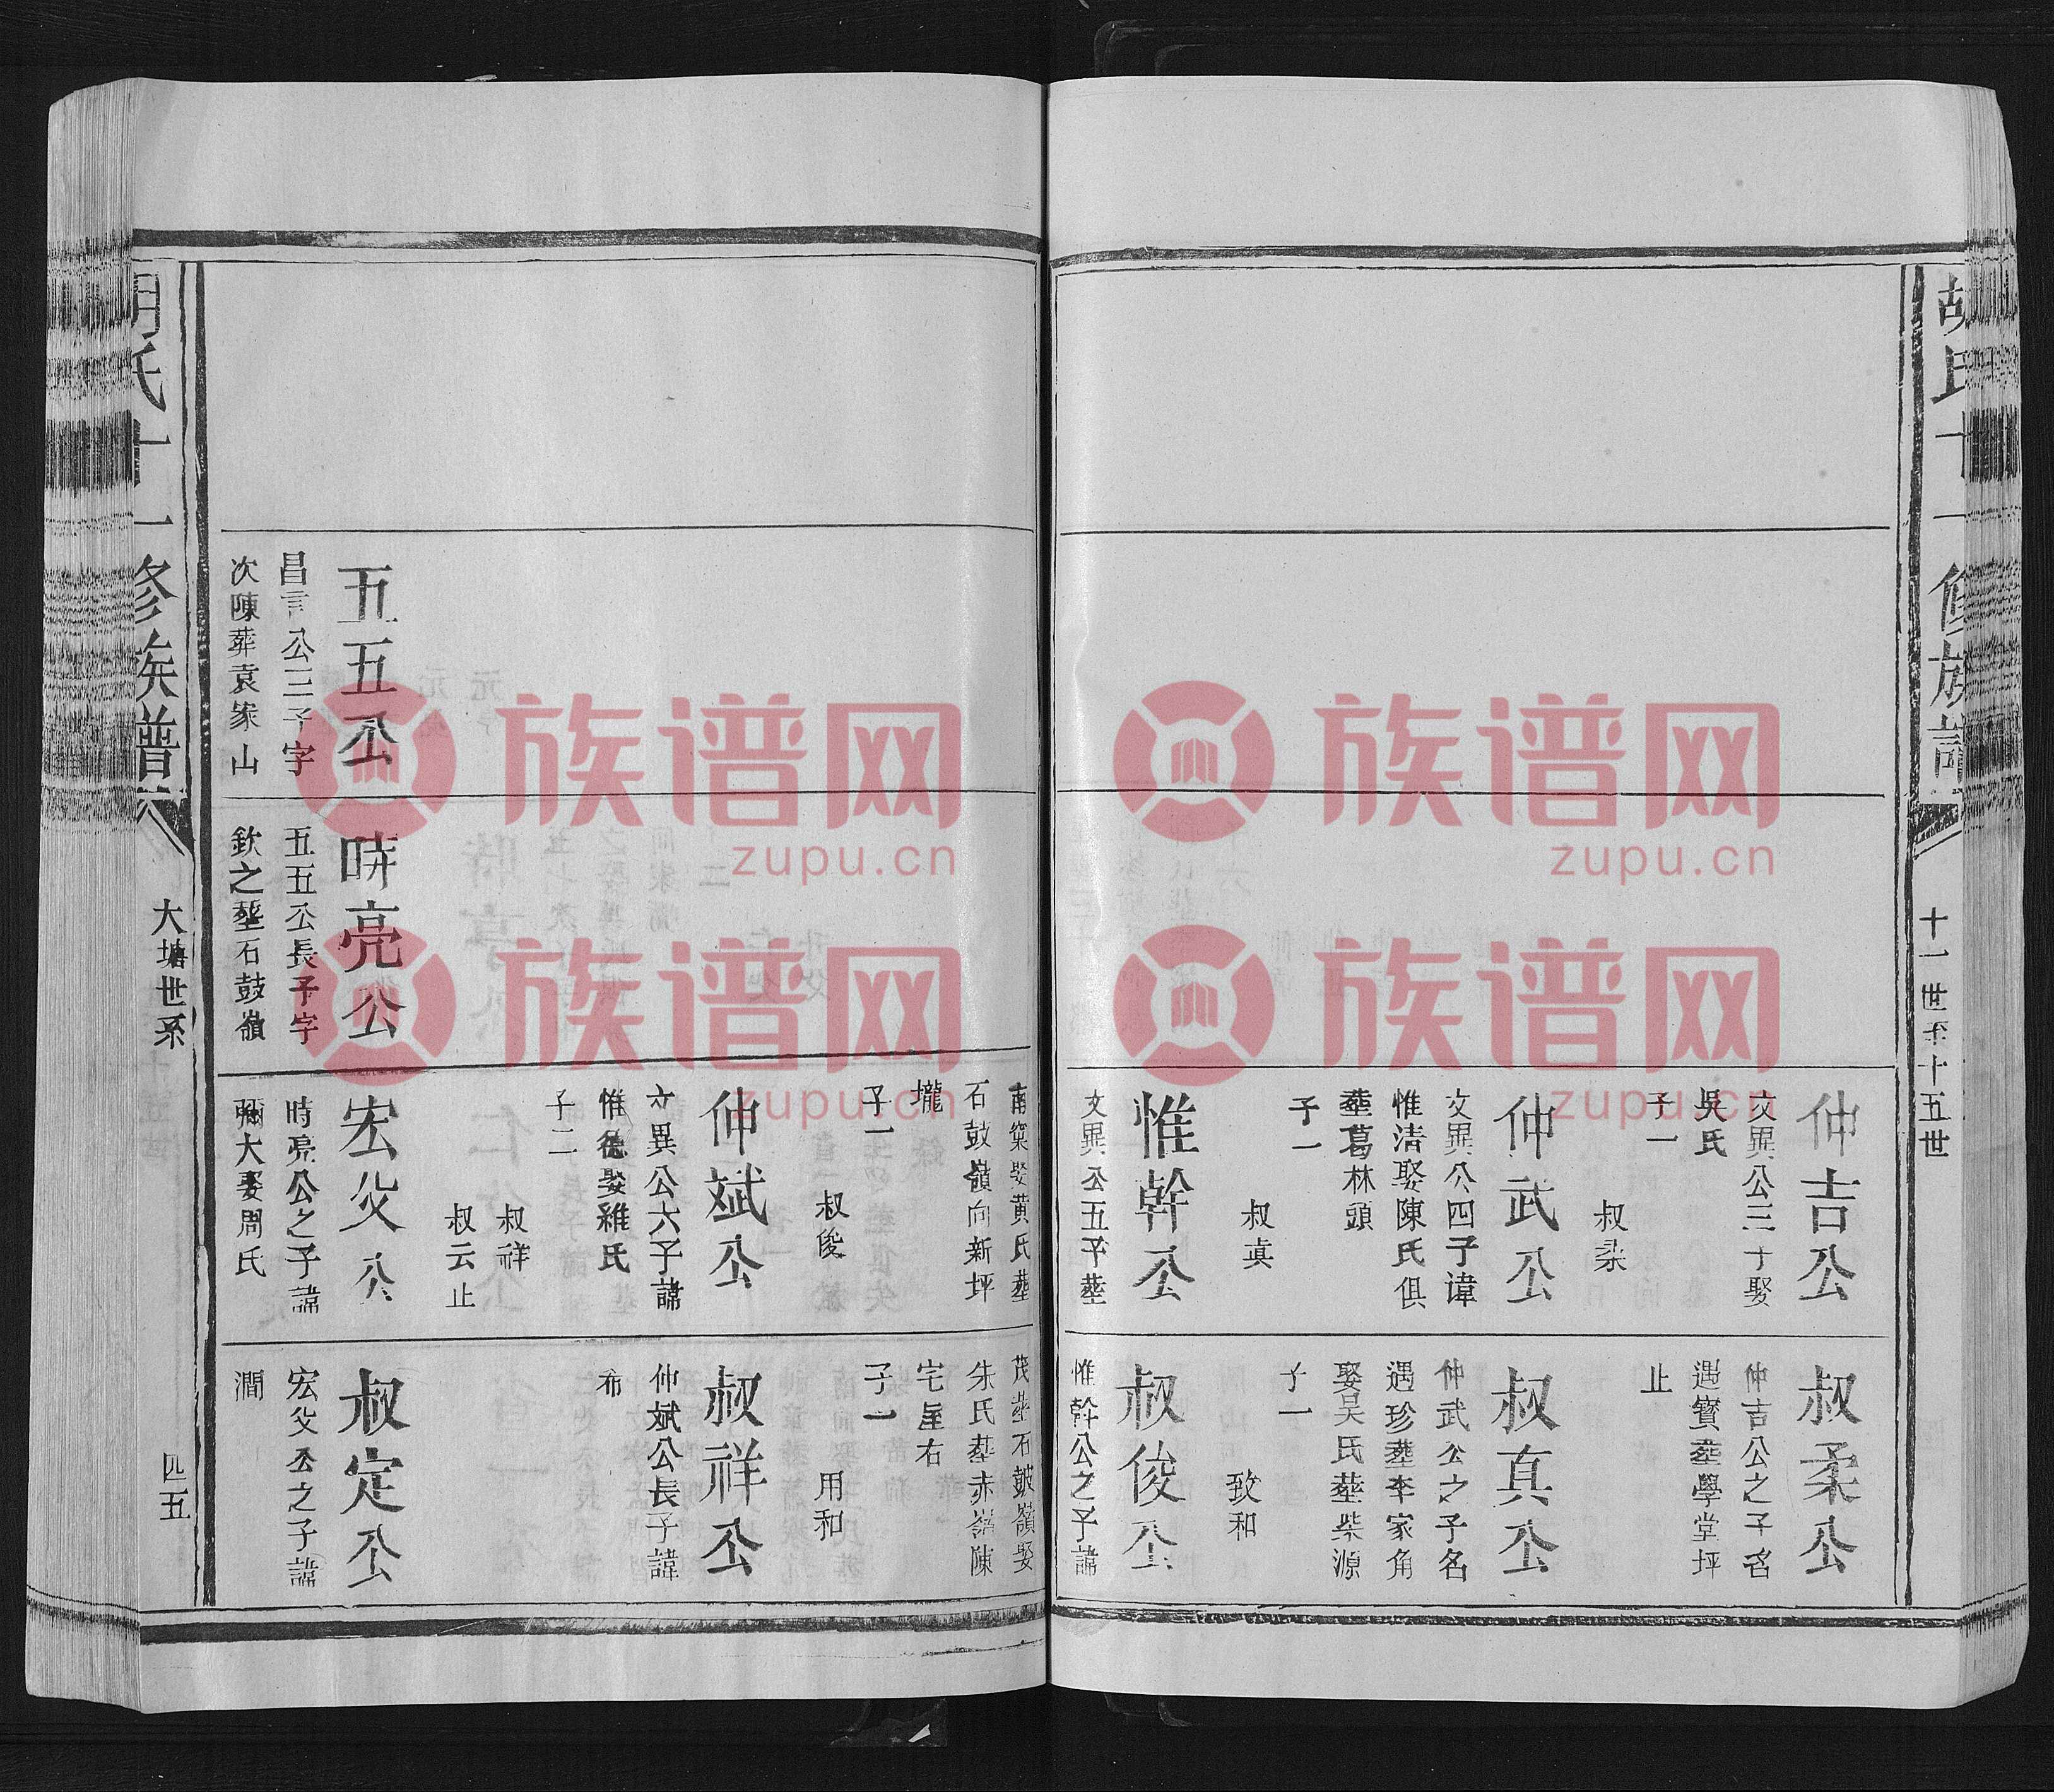 胡氏十一修族譜
十一世至十五世
仲吉公
文異公三子娶
吳氏
子一
叔柔
仲武公
文異公四子諱
惟清娶陳氏俱
塟葛林頭
子一
叔真
惟幹公
文異公五子塟
叔柔公
仲吉公之子名
遇寳塟學堂坪
止
叔真公
仲武公之子名
遇珍塟李家角
娶吴氏塟柴源
子一
致和
叔俊公
惟幹公之子諱
五五公
昌言公三子字
次陳葬袁家山
時亮公
五五公長子字
欽之塟石鼓嶺
南窠娶黃氏塟
石鼓嶺向新坪
壠
子一
叔俊
仲斌公
文異公六子諱
惟德娶雒氏
子二
叔祥
叔云止
宏父公
時亮公之子諱
彌大娶周氏
茂塟石皷嶺娶
朱氏塟赤嶺陳
宅屋右
子一
用和
叔祥公
仲斌公長子諱
布
叔定公
宏父公之子諱
澗
胡氏十一修族譜
大塘世系
四五
族谱网
zupu.cn
族谱网
zupu.cn
族谱网
zupu.cn
族谱网
zupu.cn